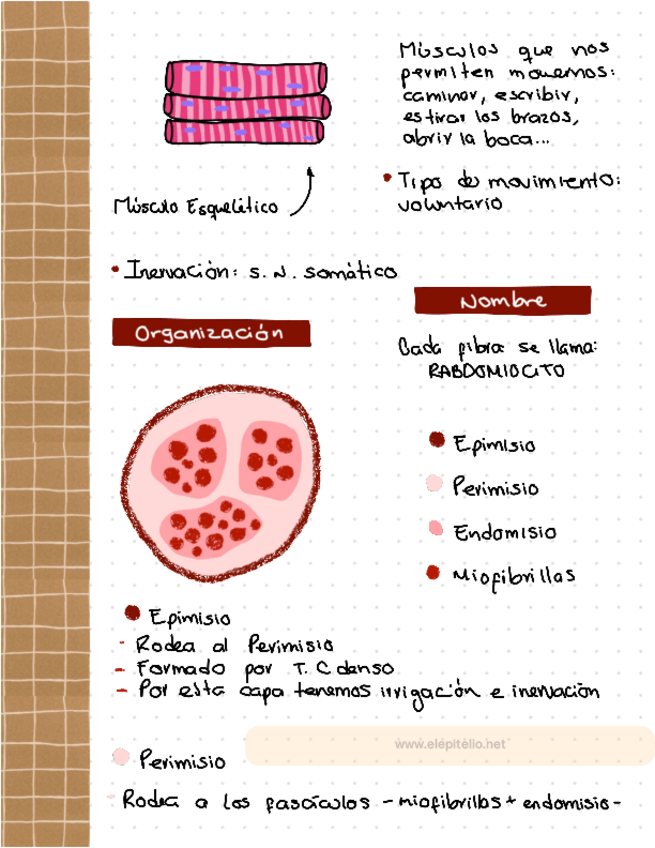 Músculos que nos
permiten movernos:
caminar, escribir,
estirar los brazos,
abrir la boca...
• Tipo de movimiento:
voluntario
Músculo Esquelético
• Inervación: S. N. somático
Nombre
Organización
Cada fibra se llama:
RABDOMIOCITO
Epimisio
Perimisio
Endomisio
Miofibrillas
Epimisio
- Rodea al Perimisio
- Formado por T. C denso
- Por esta capa tenemos irrigación e inervación
www.elepitelio.net
Perimisio
- Rodea a los fascículos - miofibrillas + endomisio -